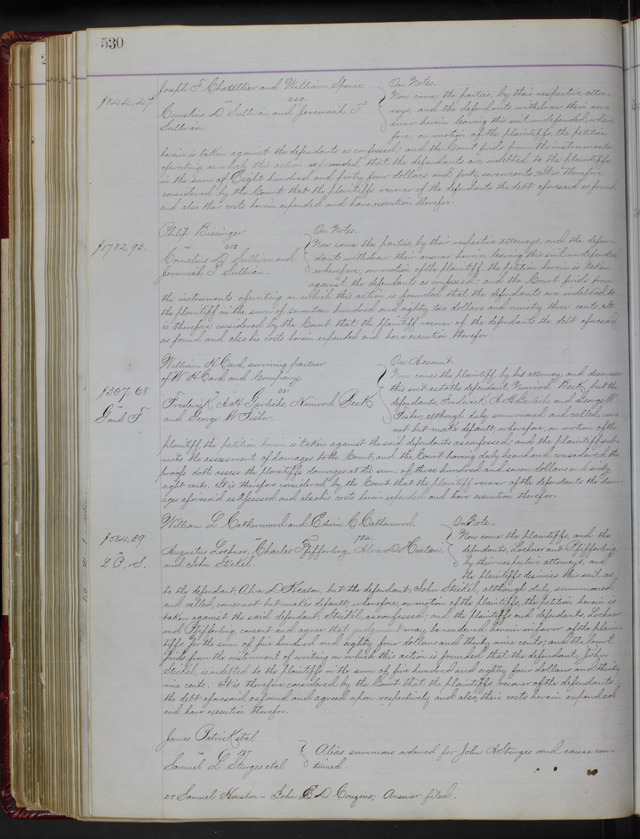 530
Joseph F Chatellier and William Spence
$844.47. vs
Cornelius D Sullivan and Jeremiah F
Sullivan.
On Notes.
Now come the parties, by their respective attor-
neys, and the defendants withdraw their an-
swer herein leaving this suit undefended, where-
fore, on motion of the plaintiffs, the petition
herein is taken against the defendants as confessed; and the Court finds from the instruments
of writing on which this action is founded that the defendants are indebted to the plaintiffs
in the sum of Eight hundred and forty four dollars and forty seven cents. It is therefore
considered by the Court that the plaintiffs recover of the defendants the debt aforesaid as found
and also their costs herein expended and have execution therefor.
Philip Bissinger
$1782.93. vs
Cornelius D Sullivan and
Jeremiah F Sullivan.
On Notes.
Now come the parties, by their respective attorneys, and the defen-
dants withdraw their answer herein leaving this suit undefended
wherefore, on motion of the plaintiff, the petition herein is taken
against the defendants as confessed; and the Court finds from
the instruments of writing on which this action is founded that the defendants are indebted to
the plaintiff in the sum of seventeen hundred and eighty two dollars and ninety three cents. It
is therefore considered by the Court that the plaintiff recover of the defendants the debt aforesaid
as found and also his costs herein expended and have execution therefor.
William H Card surviving partner
of W H Card and Company
$307.68 vs
G and F.
Frederick A H Nimrod Peck
and George W Fisher.
On Account.
Now comes the plaintiff, by his attorney, and dismisses
this suit as to the defendant, Nimrod Peck, but the
defendants Frederick A H and George W
Fisher although duly summoned and called, come
not but make default, wherefore, on motion of the
plaintiff the petition herein is taken against the said defendants as confessed; and the plaintiff sub-
mits the assessment of damages to the Court, and the Court having duly heard and considered the
proofs doth assess the plaintiffs damages at the sum of three hundred and seven dollars and sixty
eight cents. It is therefore considered by the Court that the plaintiff recover of the defendants the dam-
ages aforesaid as assessed and also his costs herein expended and have execution therefor.
William L Catherwood and Edwin C Catherwood.
$584.39 vs
L. P. S.
Augustus Lochner, Charles Pfefferling Alva D
and John Steikel
On Note.
Now come the plaintiffs, and the
defendants, Lochner and Pfefferling
by their respective attorneys, and
the plaintiffs dismiss this suit as
to the defendant, Alva D but the defendant, John Steikel, although duly summoned
and called, comes not but makes default; wherefore, on motion of the plaintiffs, the petition herein is
taken against the said defendant, Steikel, as confessed; and the plaintiffs and defendants, Lochner
and Pfefferling, consent and agree that judgment may be rendered herein in favor of the plain-
tiffs for the sum of five hundred and eighty four dollars and thirty nine cents; and the Court
finds from the instrument of writing on which this action is founded that the defendant, John
Steikel, is indebted to the plaintiffs in the sum of five hundred and eighty four dollars and thirty
nine cents. It is therefore considered by the Court that the plaintiffs recover of the defendants
the debt aforesaid as found and agreed upon respectively and also their costs herein expended
and have execution therefor.
James Patrick et al
vs
Samuel L Sturges et al
Alias summons ordered for John A Sturges and cause con-
tinued.
vs Samuel Houston - John E D Couzins; Answer filed.